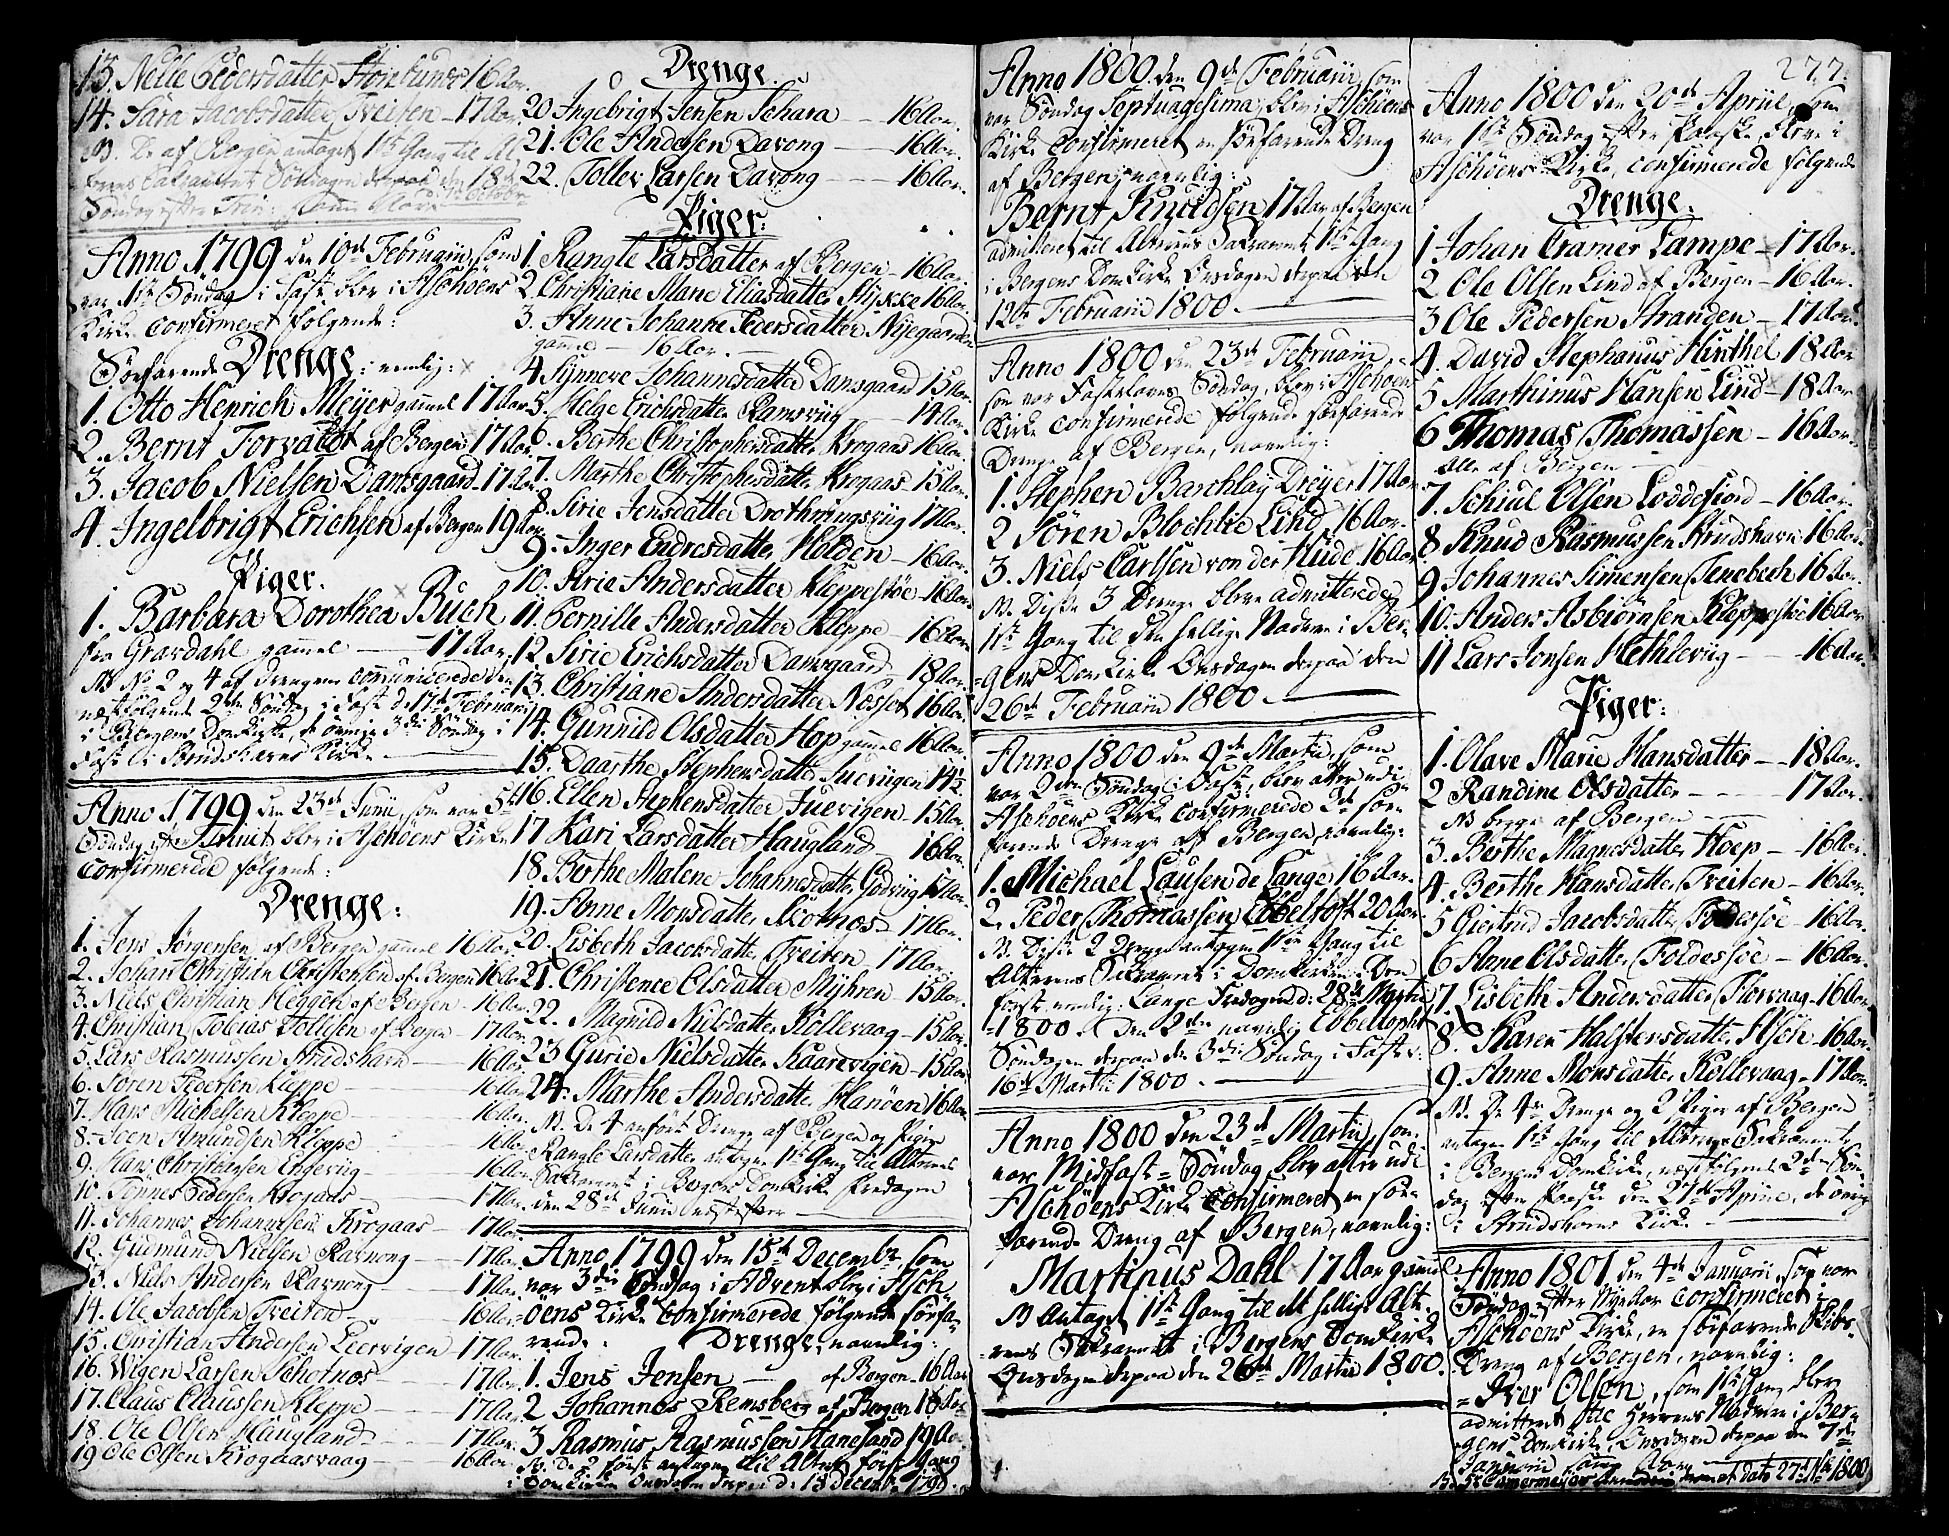 13. Nelle Pedersdatter Storetuns 16 Aar.
14. Sara Jacobsdatter Tveiten - 17 Aar
NB. De af Bergen antaget 1ste Gang til Al-
Anno 1799 den 10de Februarii, som
var 1ste Søndag i Faste blev i Aschøens
Kirke confirmeret følgende:
Søefarende Drenge: nemlig:
1. Otto Henrich Meyer gammel 17 Aar
2. Bernt Forvaldt af Bergen 17 Aar
3. Jacob Nielsen Damsgaard 17 Aar
4. Ingelbrigt Erichsen af Bergen 19 Aar
Piger.
1. Barbara Dorothea Buch
fra Gravdahl gammel - 17 Aar,
NB No 2 og 4 af Drengene communicerede den
næstfølgende 2den Søndag i Fast d. 17de Februarii
i Bergens Domkirke, de øvrige 3die Søndag i
Faste i Strudshavns Kirke.
Anno 1799 den 23de Junii, som var 5te
Søndag efter Trinit. blev i Aschøens Kirke
confirmerede følgende:
Drenge:
1. Jens Jørgensen af Bergen gammel 16 Aar.
2. Johan Christian Christensen af Bergen 16 Aar
3. Niels Christian Heggøh af Bergen - 16 Aar.
4. Christian Tobias Tollefsen af Bergen - 17 Aar.
5. Lars Rasmussen Strudshavn - 16 Aar.
6. Søren Pedersen Kleppe - 16 Aar.
7. Hans Michelsen Kleppe - 16 Aar.
8. Joen Amundsen Kleppe - 16 Aar.
9. Hans Christensen Engevig - 16 Aar.
10. Tønnes Pedersen Krogaas - 17 Aar.
11. Johannes Johannessen Krogaas - 17 Aar.
12. Gudmund Nielsen Ravnong - 17 Aar.
13. Niels Andersen Ravnong - 17 Aar.
14. Ole Jacobsen Tveiten - 16 Aar.
15. Christian Andersen Leervigen - 17 Aar.
16. Wigen Larsen Schotnos - 17 Aar.
17. Claus Claussen Kleppe - 17 Aar.
18. Ole Olsen Haugland - 17 Aar.
19 Ole Olsen Krogaasvaag - 16 Aar.
Drenge.
20 Ingebrigt Jensen Schara - 16 Aar.
21. Ole Andersen Davong - 16 Aar.
22. Tollev Larsen Davong - 16 Aar.
Piger:
1. Rangle Larsdatter af Bergen - 16 Aar.
2. Christiane Marie Eliasdatter 16 Aar.
3. Anne Johanne Pedersdatter Nyegaarden
gammel - 16 Aar.
4 Synneve Johannesdatter Damsgaard 15 Aar.
5. Helge Erichsdatter Ramsviig 14 Aar.
6. Berthe Christophersdatter Krogaas 16 Aar.
7. Marthe Christophersdatter Krogaas - 15 Aar.
8. Sirie Jensdatter Drothningsviig 17 Aar.
9. Inger Endresdatter Holden - 16 Aar.
10. Sirie Andersdatter Kleppestøe - 16 Aar
11. Pernille Andersdatter Kleppe - 16 Aar
12 Sirie Erichsdatter Damsgaard 18 Aar.
13. Christiane Andersdatter Nesset 16 Aar.
14. Gunnild Olsdatter Hop gammel 16 Aar.
15. Daarthe Stephensdatter Juevigen 14½
16. Ellen Stephensdatter Juevigen - 15 Aar.
17 Kari Larsdatter Haugland - 16 Aar.
18. Berthe Malene Johannesdatter Godviig 17 Aar.
19. Anne Monsdatter Schotnos - 17 Aar.
20. Lisbeth Jacobsdatter Tveiten - 17 Aar.
21. Christence Olsdatter Myhren - 15 Aar.
22. Magnild Nielsdatter Kollevaag - 15 Aar.
23 Gurie Nielsdatter Kaarevigen - 15 Aar.
24. Marthe Andersdatter Hanøen 16 Aar
NB. De 4 anførte Drenge af Bergen og Pigen
Rangle Larsdatter antagen 1ste Gang til Alterens
Sakrament i Bergens Domkirke Fredagen
den 28de Junii næstefter
Anno 1799 den 15de Decembr. som
var 3die Søndag i Advent blev i Asch-
øens Kirke confirmerede følgende søefa-
rende: Drenge, navnlig:
1. Jens Jensen - af Bergen - 16 Aar
2 Johannes Remsberg af Bergen 16 Aar
3 Rasmus Rasmussen Hanesand 19 Aar.
NB. De 2 første antagen til Alters første Gang
i Domkirken Onsdagen derpaa d: 18 Decembr 1799.
Anno 1800 den 9de Februarii, som
var Søndag Septuagesima, blev i Aschøens
Kirke confirmeret en søefarende Dreng
af Bergen, navnlig:
Bernt Knudsen 17 Aar af Bergen
admitteret til Alterens Sakrament 1ste Gang
i Bergens Domkirke Onsdagen derpaa den
12te Februarii 1800.
Anno 1800 den 23de Februarii
som var Fastelavns Søndag, blev i Aschøens
Kirke confirmerede følgende søefarende
Drenge af Bergen, navnlig:
1. Stephen Barchlay Dreyer 17 Aar
2 Søren Blochlie Lind 16 Aar.
3. Niels Carlsen von der Hude 16 Aar
NB. Disse 3 Drenge bleve admitterede
1ste Gang til den hellige Nadvere i Ber-
gens Domkirke Onsdagen derpaa den
26de Februarii 1800.
Anno 1800 den 9de Martii, som
var 2den Søndag i Faste, blev atter udi
Aschøens Kirke confirmerede 2de søe-
farende Drenge af Bergen, navnlig:
1. Michael Lausen de Lange 16 Aar.
2. Peder Thomassen Ebbeltoft 20 Aar
NB. Disse 2 Drenge antagen 1ste Gang til
Alterens Sakrament i Domkirken: Den
første nemlig: Lange Fredagen d: 28de Martii
1800 & den 2den navnlig Ebbeltopht
Søndagen derpaa den 3die Søndag i Faste:
16de Martii 1800.
Anno 1800 den 23de Martii, som
var Midfaste-Søndag, blev atter udi
Aschøens Kirke confirmeret en søe-
farende Dreng af Bergen, navnlig:
Martinus Dahl 17 Aar gammel
NB Antaget 1ste Gang til det hellige Alt-
erens Sakrament i Bergens Domkirke
Onsdagen derpaa den 26de Martii 1800.
277.
Anno 1800 den 20de Aprill, som
var 1ste Søndag efter Paaske, bleve i
Aschøens Kirke, confirmerede følgende
Drenge.
1 Johan Cramer Lampe - 17 Aar.
2 Ole Olsen Lind af Bergen - 16 Aar.
3 Ole Pedersen Stranden - 17 Aar.
4. David Stephanus Hinthel 18 Aar
5 Marthinus Hansen Lind - 18 Aar
6 Thomas Thomassen - 16 Aar.
Alle af Bergen
7. Schiul Olsen Loddefiord - 16 Aar.
8 Knud Rasmussen Strudshavn 16 Aar.
9. Johannes Simensen Tenebech 16 Aar.
10. Anders Asbiørnsen Kleppestøe 16 Aar
11 Lars Jonsen Hethleviig - 16 Aar.
Piger:
1. Olave Marie Hansdatter - 18 Aar.
2 Randine Olsdatter - 17 Aar.
NB begge af Bergen
3. Berthe Magnesdatter Hoep - 16 Aar.
4. Berthe Hansdatter Tveiten - 16 Aar.
5 Giertrud Jacobsdatter Foldessøe - 16 Aar.
6 Anne Olsdatter Foldessøe - 16 Aar.
7. Lisbeth Andersdatter Florvaag - 16 Aar
8. Karen Halstensdatter Asch - 16 Aar.
9. Anne Monsdatter Kollevaag - 17 Aar.
NB. De 4re Drenge og 2 Piger af Bergen
antagen 1ste Gang til Alterens Sakramente
i Bergens Domkirke, næstfølgende 2den Søn-
dag efter Paaske den 27de Aprill, de øvrige
i Strudshavns Kirke
Anno 1801 den 4de Januarii, som var
Søndag efter Nyt Aar confirmeret i
Aschøens Kirke, en søefarende Skibs-
Dreng af Bergen, navnlig:
Iver Olsen, som 1ste Gang blev
admitteret til Herrens Nadvere i Ber-
gens Domkirke, Onsdagen derpaa den 7de
Januarii